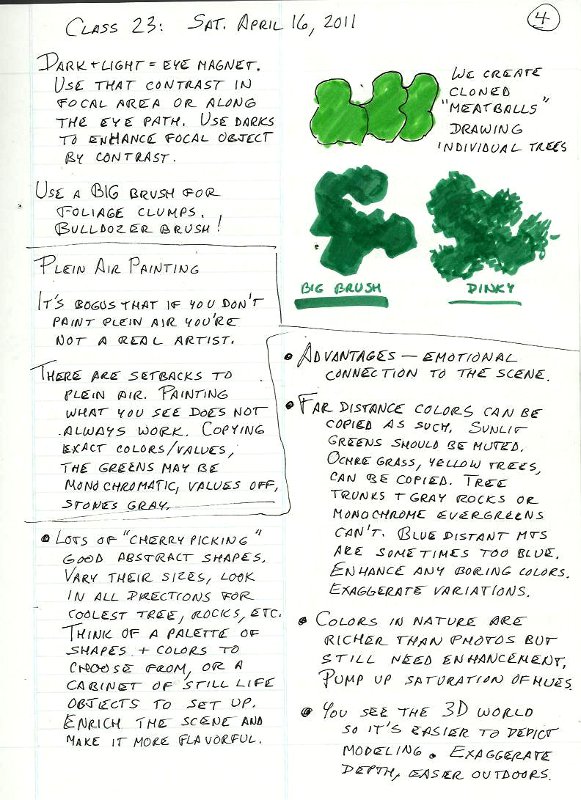 Class 23: Sat. April 16, 2011
4
Dark + Light = Eye Magnet.
Use that contrast in
focal area or along
the eye path. Use darks
to enhance focal object
by contrast.
Use a BIG brush for
foliage clumps.
Bulldozer brush!
We create
cloned
"meatballs"
drawing
individual trees
BIG BRUSH
DINKY
Plein Air Painting
It's bogus that if you don't
paint plein air you're
not a real artist.
There are setbacks to
plein air. Painting
what you see does not
always work. Copying
exact colors/values,
the greens may be
monochromatic, values off,
stones gray.
• Lots of "cherry picking"
good abstract shapes.
Vary their sizes, look
in all directions for
coolest tree, rocks, etc.
Think of a palette of
shapes + colors to
choose from, or a
cabinet of still life
objects to set up.
Enrich the scene and
make it more flavorful.
• Advantages — emotional
connection to the scene.
• Far distance colors can be
copied as such. Sunlit
greens should be muted.
Ochre grass, yellow trees,
can be copied. Tree
trunks + gray rocks or
monochrome evergreens
can't. Blue distant mts
are sometimes too blue.
Enhance any boring colors.
Exaggerate variations.
• Colors in nature are
richer than photos but
still need enhancement.
Pump up saturation of hues.
• You see the 3D world
so it's easier to depict
modeling. Exaggerate
depth, easier outdoors.